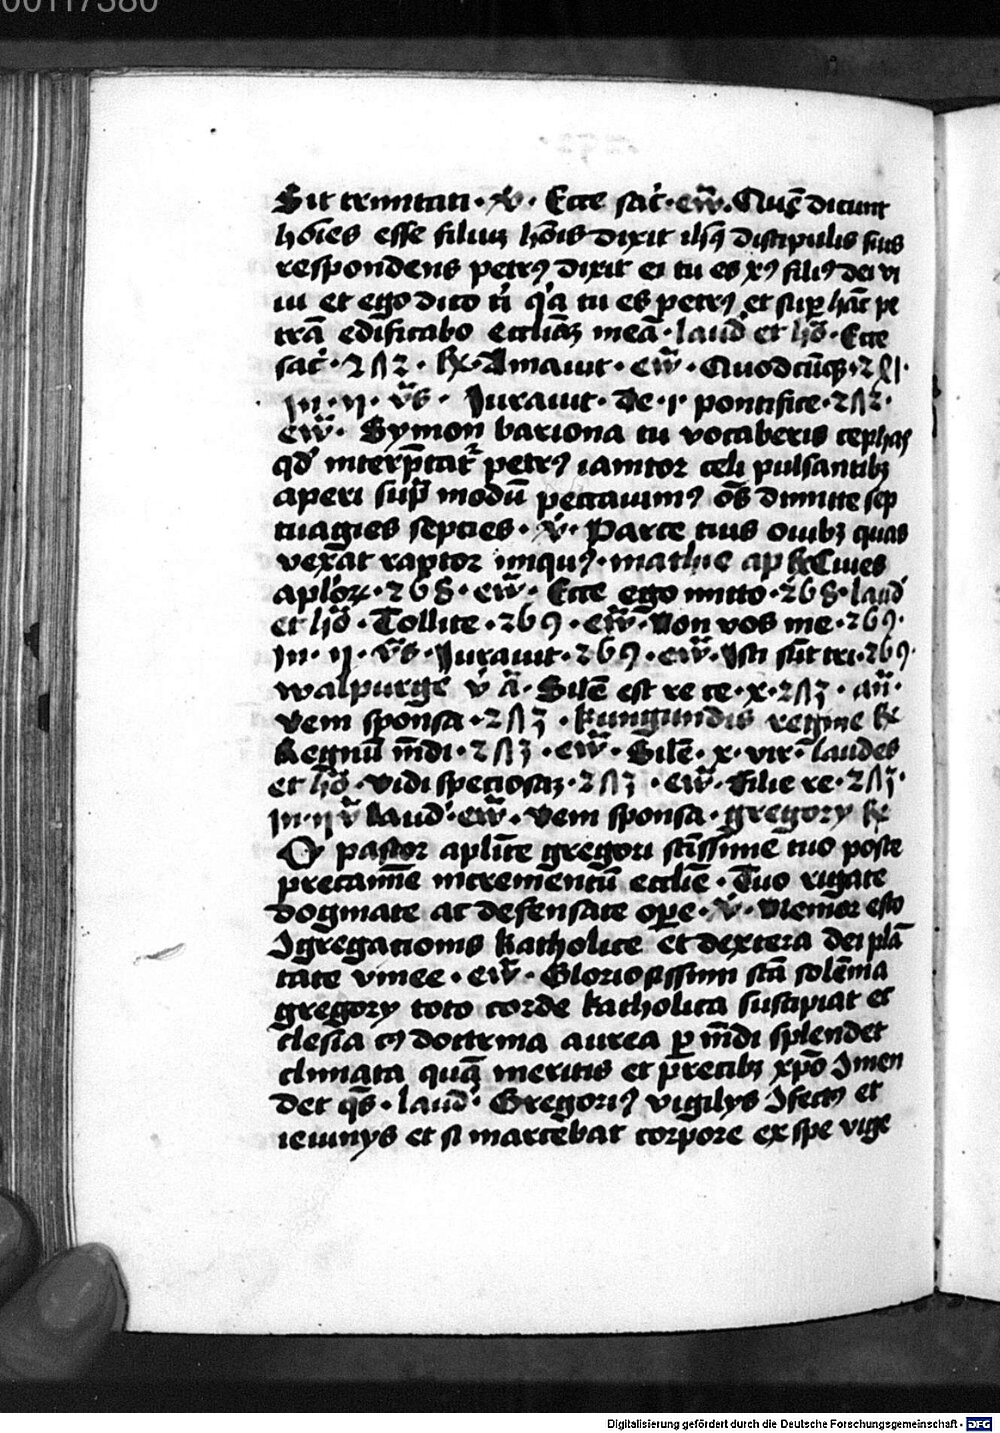 00117380
Sit trinitati · v̇ · Ecce sac̄ · ew̄ · Quē dicunt
hōies esse filiuꝫ hōis dixit ihs̄ discipulis suis
respondens petrꝰ dixit ei tu es xꝰ filiꝰ dei vi
ui et ego dico ti q̇a tu es petrꝰ et sup̄ hāc pe
trā edificabo eccliāꝫ meā · laud̄ et hō · Ecce
sac̄ · 282 · ℟ · Amauit · ew̄ · Quodcūqꝫ
in · ij · v̄s · Jurauit · De · i · pontifice · 282 ·
ew̄ · Symon bariona tu vocaberis cephas
qd̄ interp̄tat᷑ petrꝰ ianitor celi pulsantibꝫ
aperi sup̄ modū peccauimꝰ ōs dimitte sep
tuagies septies · v̇ · Parce tuis ouibꝫ quas
vexāt raptor iniquꝰ · mathie ap ℟ Ciues
aplōꝝ · 268 · ew̄ · Ecce ego mitto · 268 · laud̄
et hō · Tollite · 269 · ew̄ · Non vos me · 269 ·
in · ij · v̄s · Jurauit · 269 · ew̄ · Isti sūt tri · 269 ·
walpurge v̇ ā · Silē est re ce · x · 283 · añ ·
Veni sponsa · 283 · kungundis regine ℟
Regnū mdī · 283 · ew̄ · Silē · x · vir · laudes
et hō · vidi speciosaꝫ · 283 · ew̄ · Filie re · 283 ·
in · ij v̄ laud̄ · ew̄ · Veni sponsa · gregory ℟
O pastor aplīce gregori sc̄issime tuo posce
precamīe incrementū ecclīe · Tuo rigate
dogmate ac defensate ope · v̇ · Memor esto
ꝯgregationis katholice et dextera dei plā
tate vinee · ew̄ · Gloriosissimi scā solēnia
gregory toto corde katholica suscipiat ec
clesia cꝰ doctrina aurea ꝑ mdī splendet
climata quā meritis et p̄recibꝫ xpō ꝯmen
det qs̄ · laud̄ · Gregoriꝰ vigilijs ꝯfectꝰ et
ieiunijs et si marcebat corpore ex spe vige
Digitalisierung gefördert durch die Deutsche Forschungsgemeinschaft - DFG